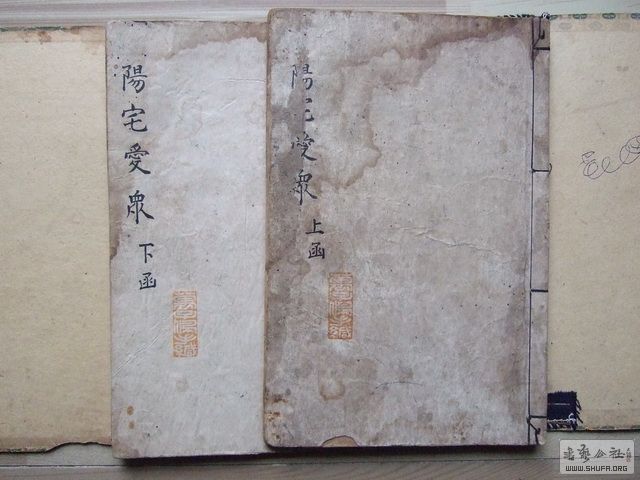 陽宅愛眾
上函
陽宅愛眾
下函
書藝公社
WWW.SHUFA.ORG